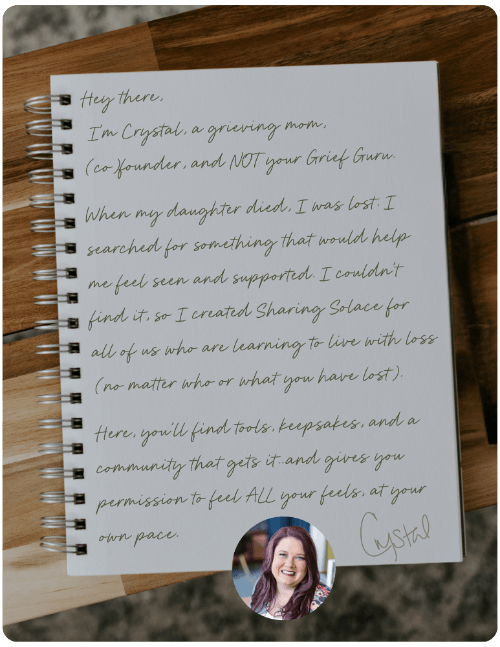 Hey there,
I'm Crystal, a grieving mom,
(co)founder, and NOT your Grief Guru.
When my daughter died, I was lost. I
searched for something that would help
me feel seen and supported. I couldn't
find it, so I created Sharing Solace for
all of us who are learning to live with loss
(no matter who or what you have lost).
Here, you'll find tools, keepsakes, and a
community that gets it...and gives you
permission to feel ALL your feels, at your
own pace.
Crystal